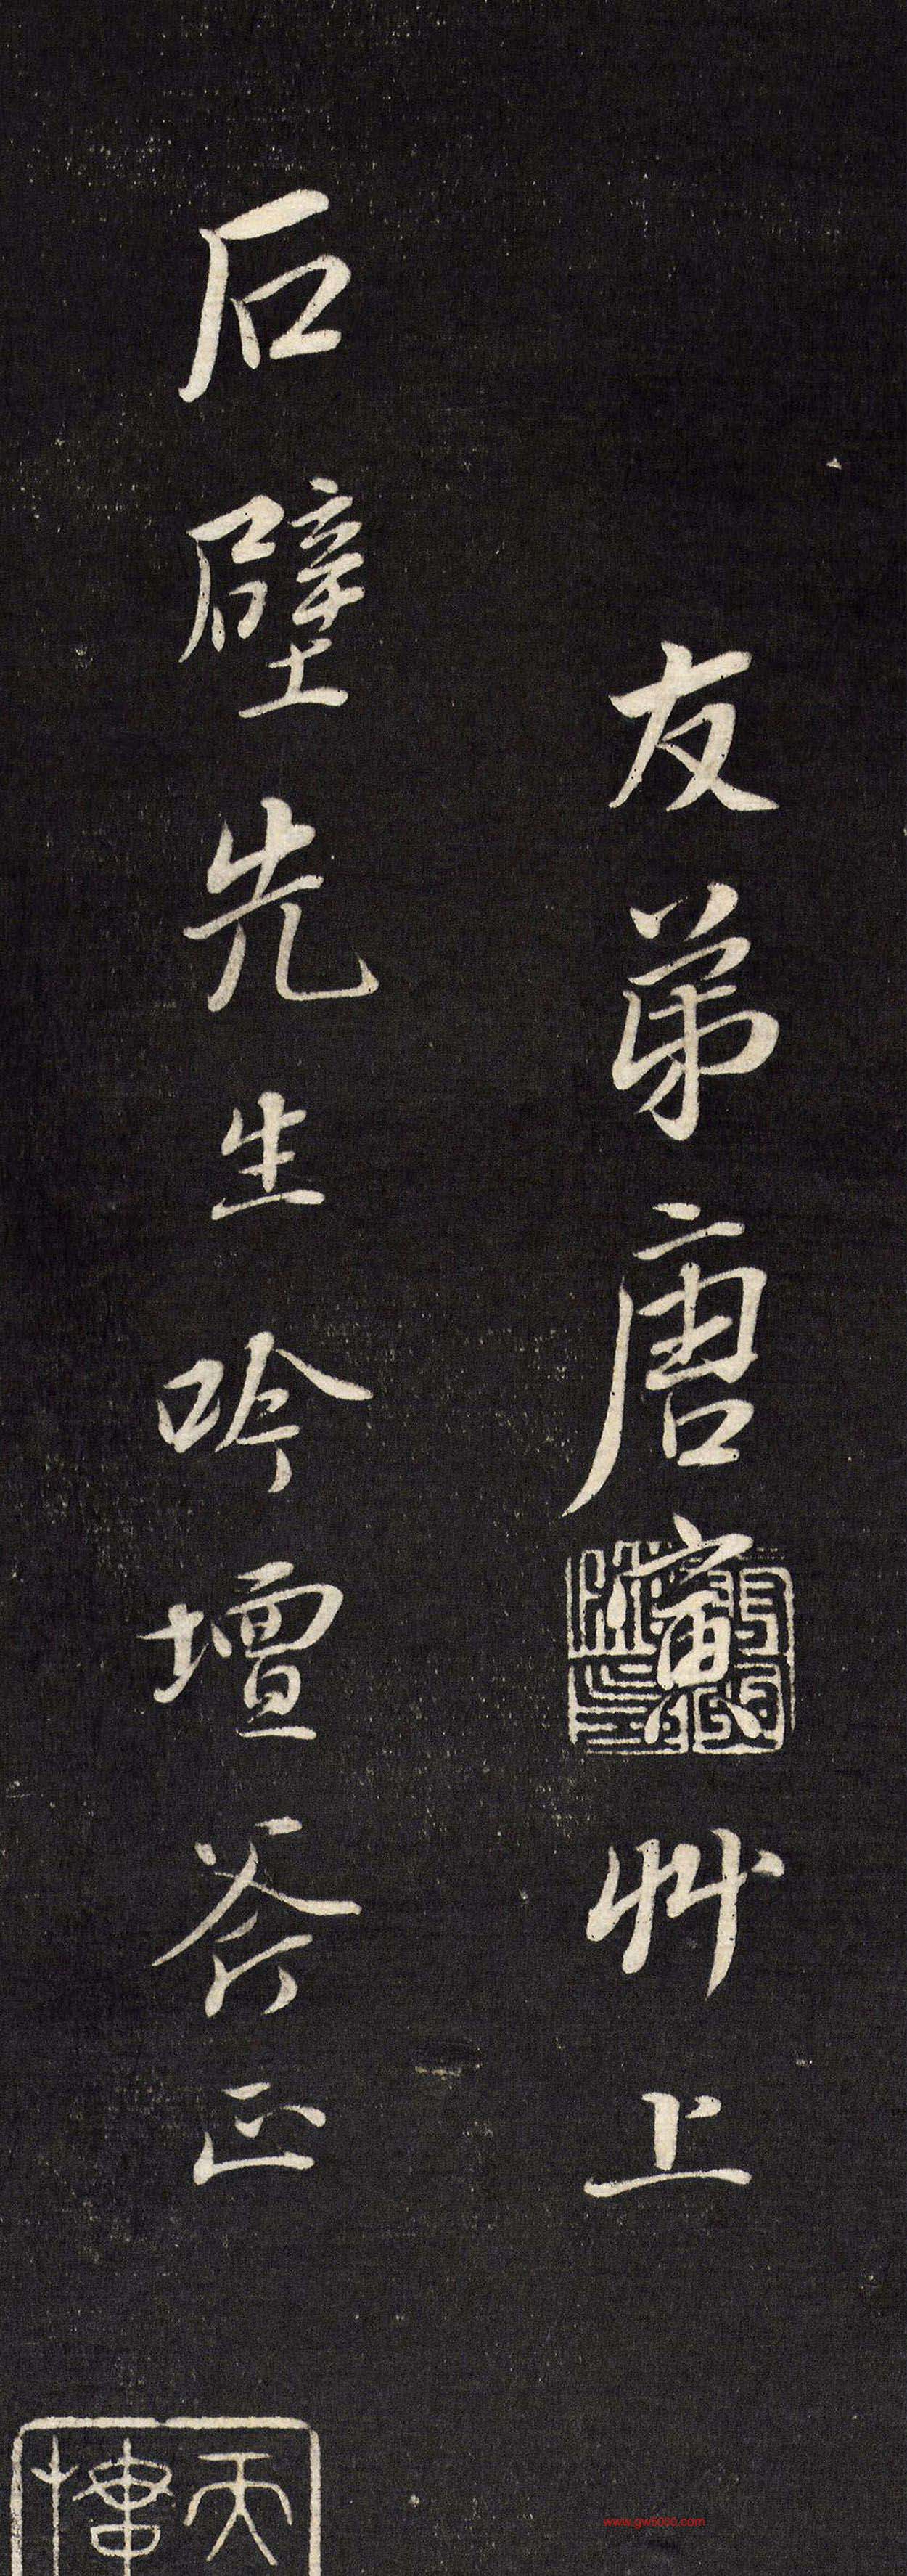 友弟唐寅艸上
石壁先生吟壇斧正
www.gw5000.com